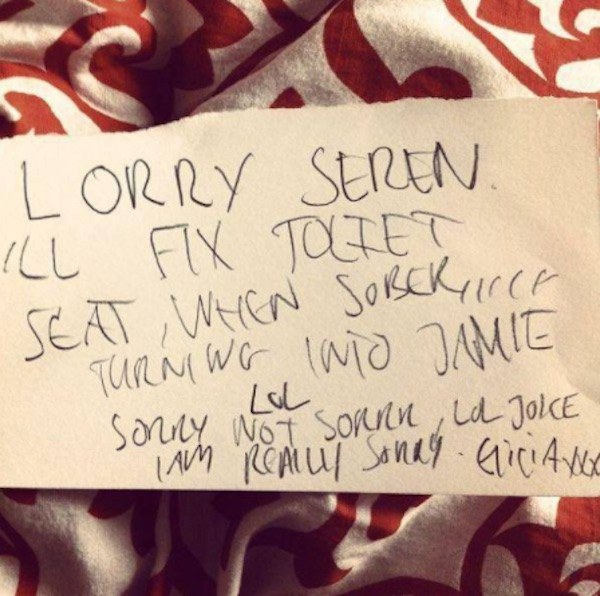 LORRY SEREN.
I'LL FIX TOLIET
SEAT, WHEN SOBER,
TURNING INTO JAMIE
LOL
SORRY NOT SORRR, LOL JOKE
I AM REALLY SORRY. GICIAxxx